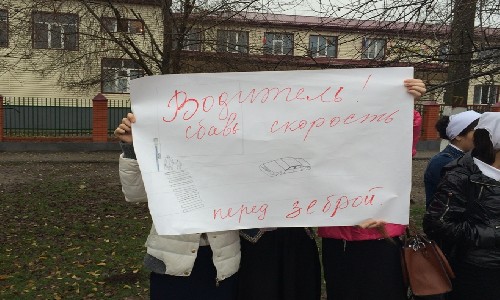 Водитель!
сбавь скорость
перед зеброй